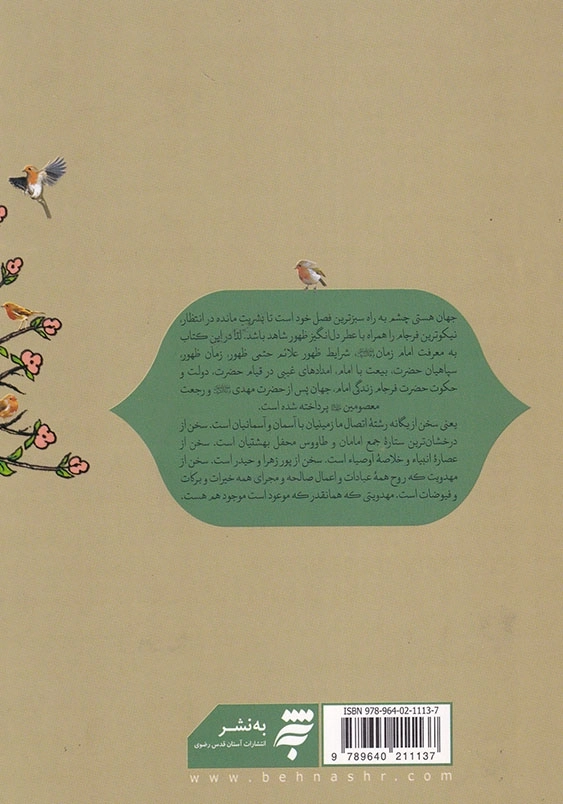 جهان هستی چشم به راه سبزترین فصل خود است تا بشریت مانده در انتظار،
نیکوترین فرجام را همراه با عطر دل‌انگیز ظهور شاهد باشد. لذا در این کتاب
به معرفت امام زمان، شرایط ظهور علائم حتمی ظهور، زمان ظهور،
سپاهیان حضرت، بیعت با امام، امدادهای غیبی در قیام حضرت، دولت و
حکوت حضرت فرجام زندگی امام، جهان پس از حضرت مهدی و رجعت
معصومین پرداخته شده است.
یعنی سخن از یگانه رشتهٔ اتصال ما زمینیان با آسمان و آسمانیان است. سخن از
درخشان‌ترین ستارهٔ جمع امامان و طاووس محفل بهشتیان است. سخن از
عصارهٔ انبیاء و خلاصهٔ اوصیاء است. سخن از پور زهرا و حیدر است. سخن از
مهدویت که روح همهٔ عبادات و اعمال صالحه و مجرای همه خیرات و برکات
و فیوضات است. مهدویتی که همانقدر که موعود است موجود هم هست.
به نشر
انتشارات آستان قدس رضوی
ISBN 978-964-02-1113-7
9 789640 211137
www.behnashr.com